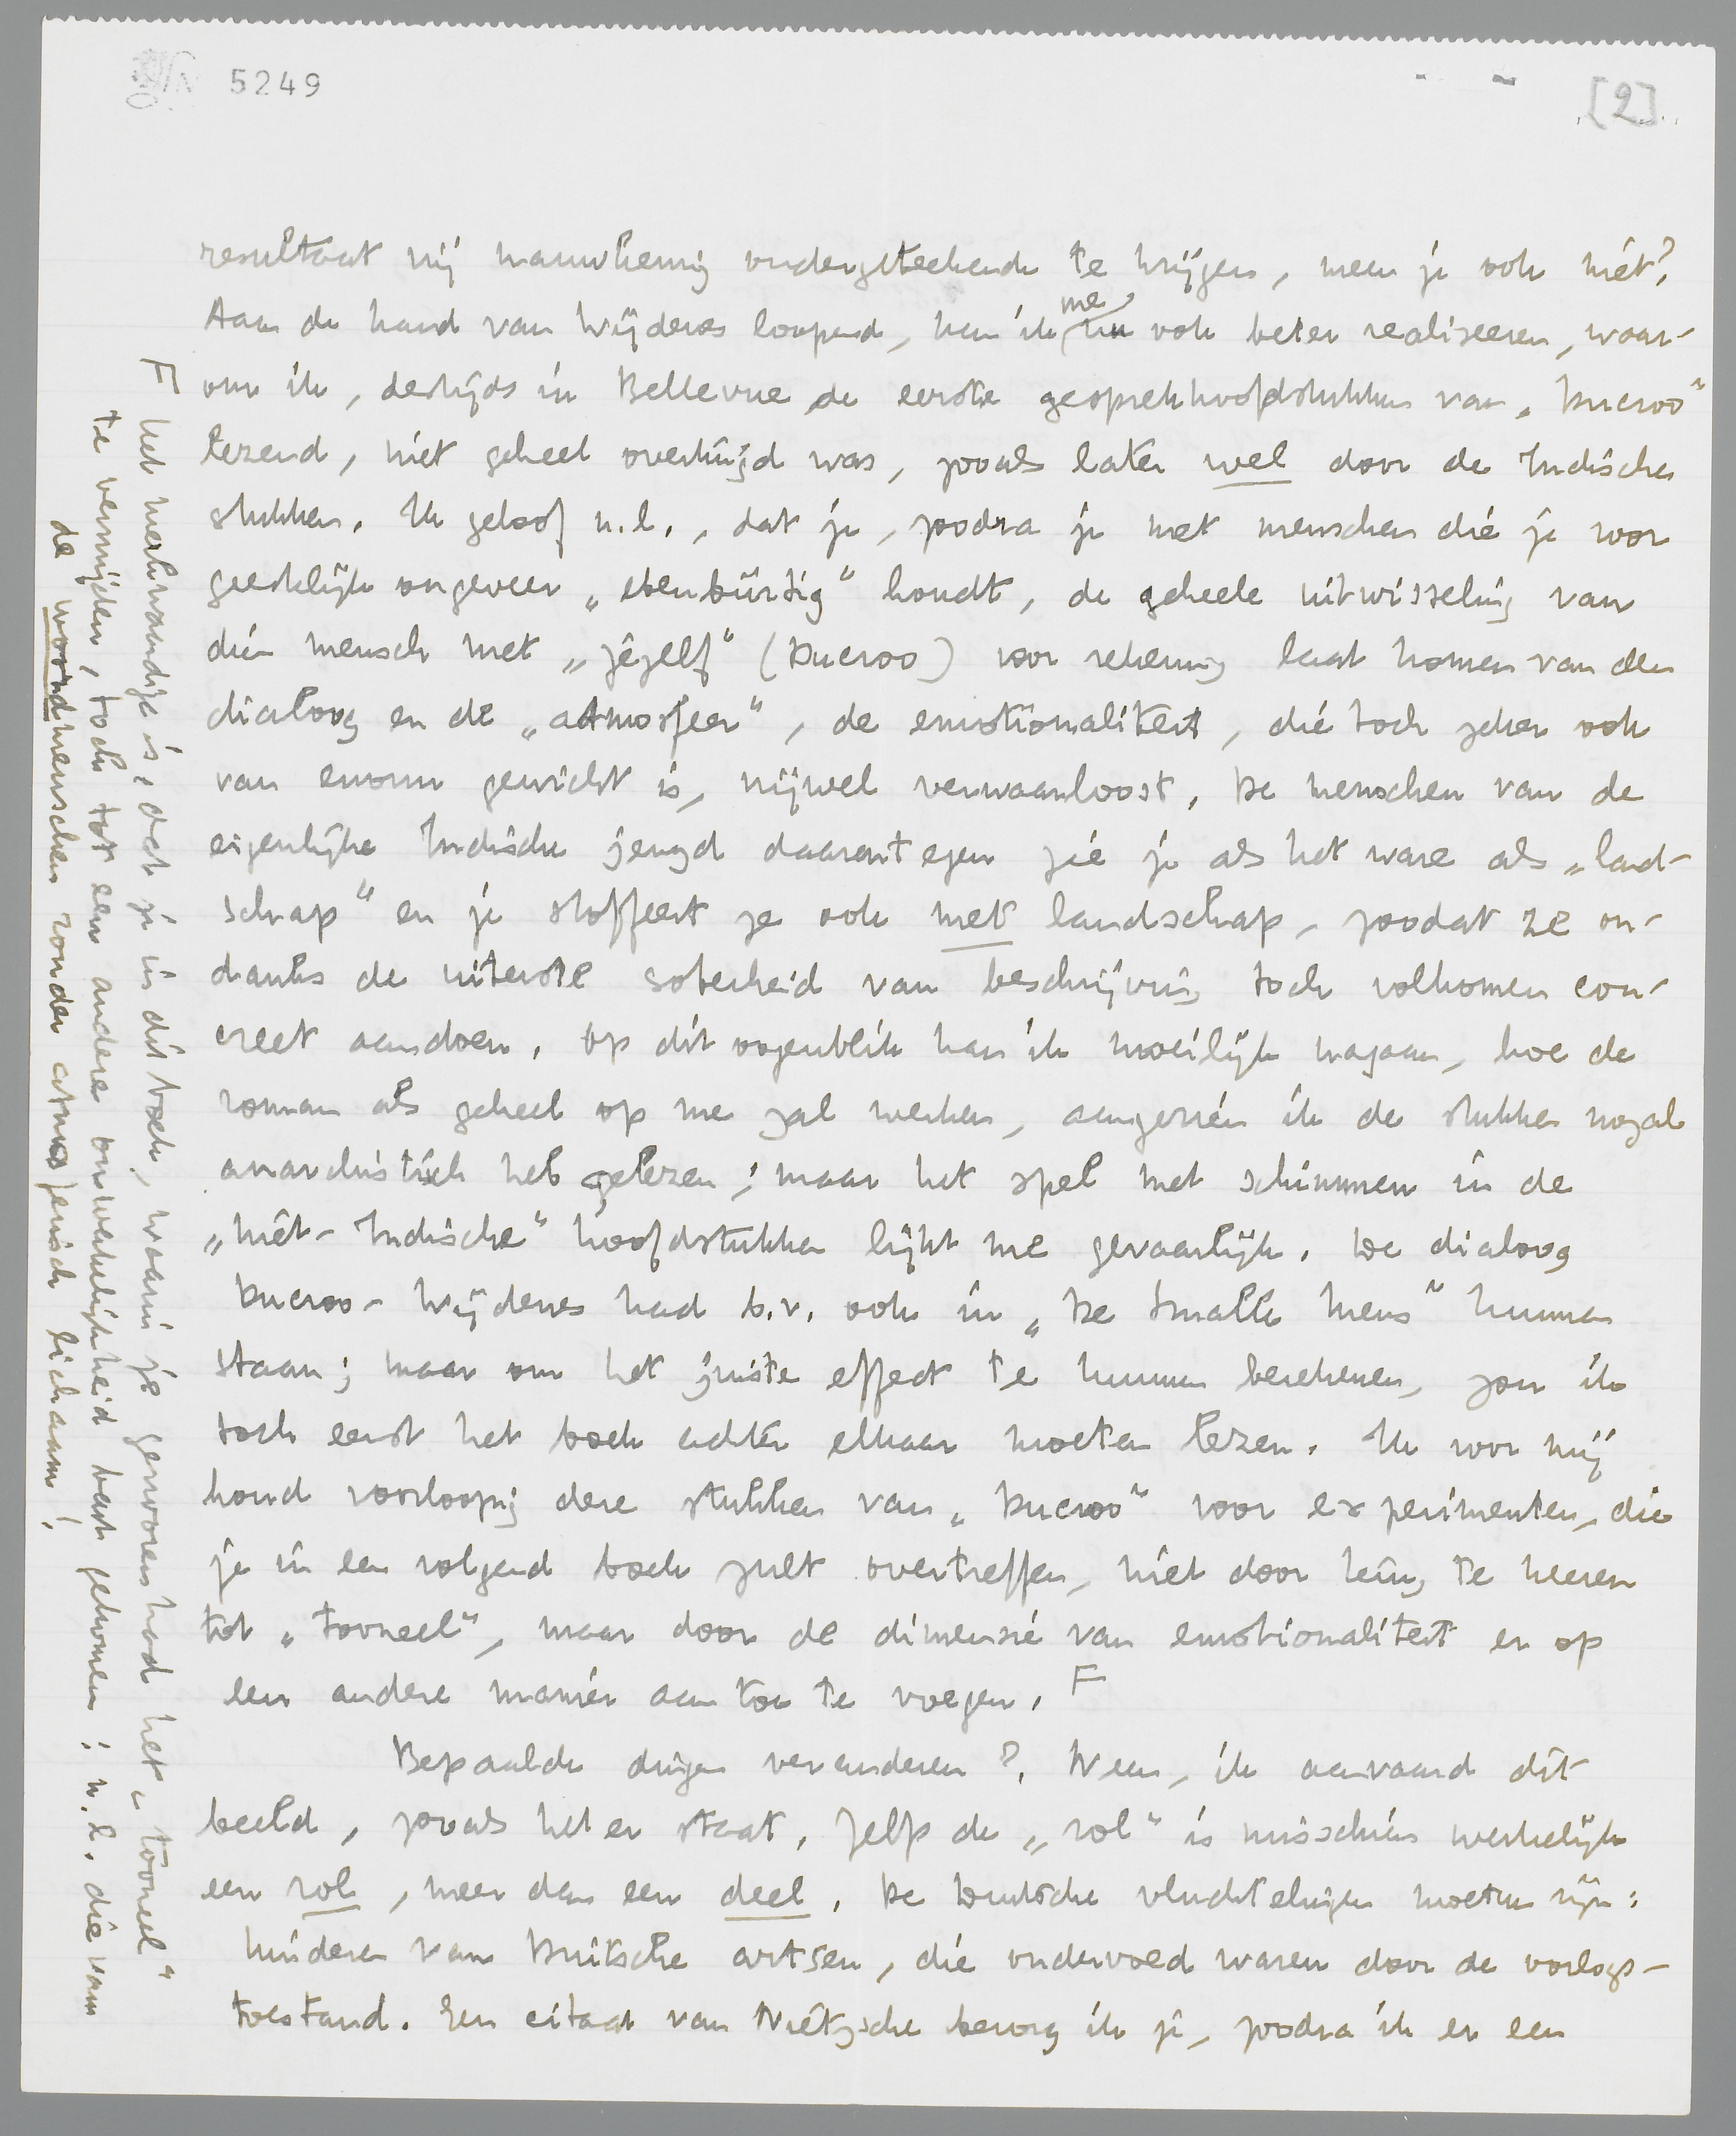 5249
[2]
resultaat mij nauwkeurig ondergeteekende te krijgen, meen je ook niet?
Aan de hand van Wijdenes loopend, kan ik me nu ook beter realiseeren, waar-
om ik, destijds in Bellevue de eerste gesprekhoofdstukken van „Ducroo”
lezend, niet geheel overtuigd was, zooals later wel door de Indische
stukken. Ik geloof n.l., dat je, zoodra je met menschen die je voor
geestelijk ongeveer „ebenbürtig” houdt, de geheele uitwisseling van
dien mensch met „jezelf” (Ducroo) voor rekening laat komen van den
dialoog en de „atmosfeer”, de emotionaliteit, die toch zeker ook
van enorm gewicht is, vrijwel verwaarloost. De menschen van de
eigenlijke Indische jeugd daarentegen zie je als het ware als „land-
schap” en je stoffeert ze ook met landschap, zoodat ze on-
danks de uiterste soberheid van beschrijving toch volkomen con-
creet aandoen. Op dit oogenblik kan ik moeilijk nagaan, hoe de
roman als geheel op me zal werken, aangezien ik de stukken nogal
anarchistisch heb gelezen; maar het spel met schimmen in de
„niet-Indische” hoofdstukken lijkt me gevaarlijk. De dialoog
Ducroo-Wijdenes had b.v. ook in „De Smalle Mens” kunnen
staan; maar om het juiste effect te kunnen berekenen, zou ik
toch eerst het boek achter elkaar moeten lezen. Ik voor mij
houd voorloopig deze stukken van „Ducroo” voor experimenten, die
je in een volgend boek zult overtreffen, niet door terug te keeren
tot „tooneel”, maar door de dimensie van emotionaliteit er op
een andere manier aan toe te voegen. F
Bepaalde dingen veranderen? Neen, ik aanvaard dit
beeld, zooals het er staat. Zelfs de „rol” is misschien werkelijk
een rol, meer dan een deel. De Duitsche vluchtelingen moeten zijn:
kinderen van Duitsche artsen, die ondervoed waren door de oorlogs-
toestand. Een citaat van Nietzsche bezorg ik je, zoodra ik er een
F het merkwaardige is, dat je in dit boek, waarin je gezworen had het „tooneel”
te vermijden, toch tot een andere onwerkelijkheid bent gekomen: n.l. die van
de woordmenschen zonder atmosferisch lichaam!